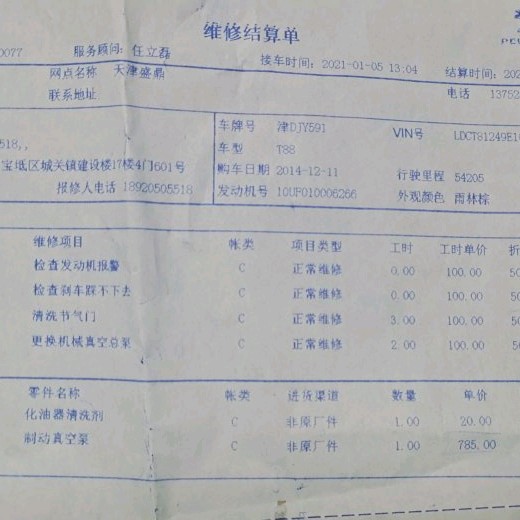 维修结算单
0077 服务顾问: 任立磊 接车时间: 2021-01-05 13:04 结算时间: 202
网点名称 天津盛鼎
联系地址 电话 13752
518,, 车牌号 津DJY591 VIN号 LDCT81249E1
宝坻区城关镇建设楼17楼4门601号 车型 T88
购车日期 2014-12-11 行驶里程 54205
报修人电话 18920505518 发动机号 10UF010006266 外观颜色 雨林棕
维修项目 帐类 项目类型 工时 工时单价 折
检查发动机报警 C 正常维修 0.00 100.00 50
检查刹车踩不下去 C 正常维修 0.00 100.00 50
清洗节气门 C 正常维修 3.00 100.00 50
更换机械真空总泵 C 正常维修 2.00 100.00 50
零件名称 帐类 进货渠道 数量 单价
化油器清洗剂 C 非原厂件 1.00 20.00
制动真空泵 C 非原厂件 1.00 785.00